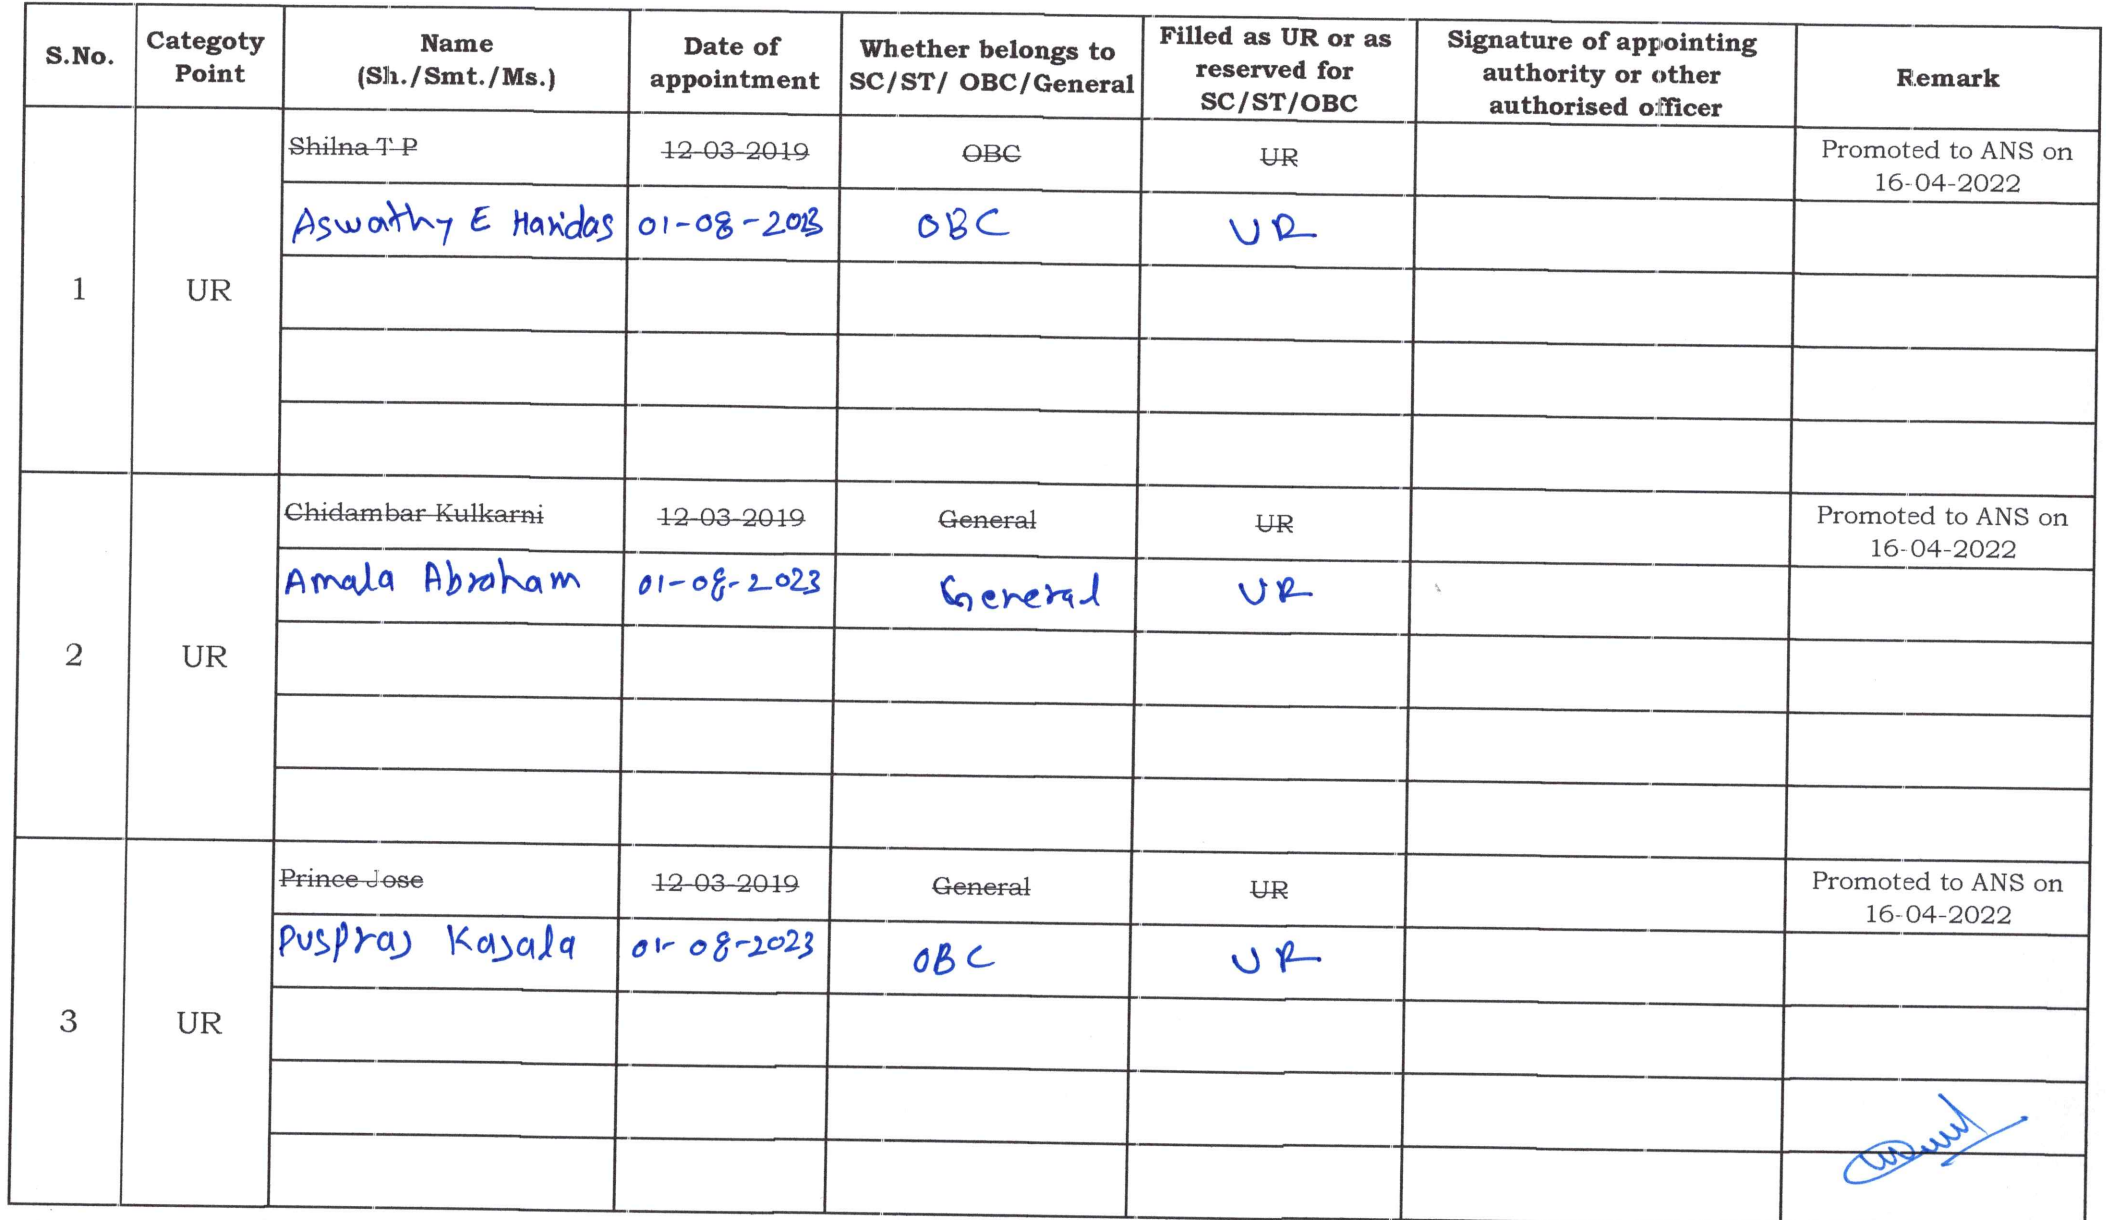 S.No. Categoty Point Name (Sh./Smt./Ms.) Date of appointment Whether belongs to SC/ST/ OBC/General Filled as UR or as reserved for SC/ST/OBC Signature of appointing authority or other authorised officer Remark
1 UR
Shilna T P 12-03-2019 OBC UR Promoted to ANS on 16-04-2022
Aswathy E Haridas 01-08-2023 OBC UR
2 UR
Chidambar Kulkarni 12-03-2019 General UR Promoted to ANS on 16-04-2022
Amala Abraham 01-08-2023 General UR
3 UR
Prince Jose 12-03-2019 General UR Promoted to ANS on 16-04-2022
Puspraj Kajala 01-08-2023 OBC UR